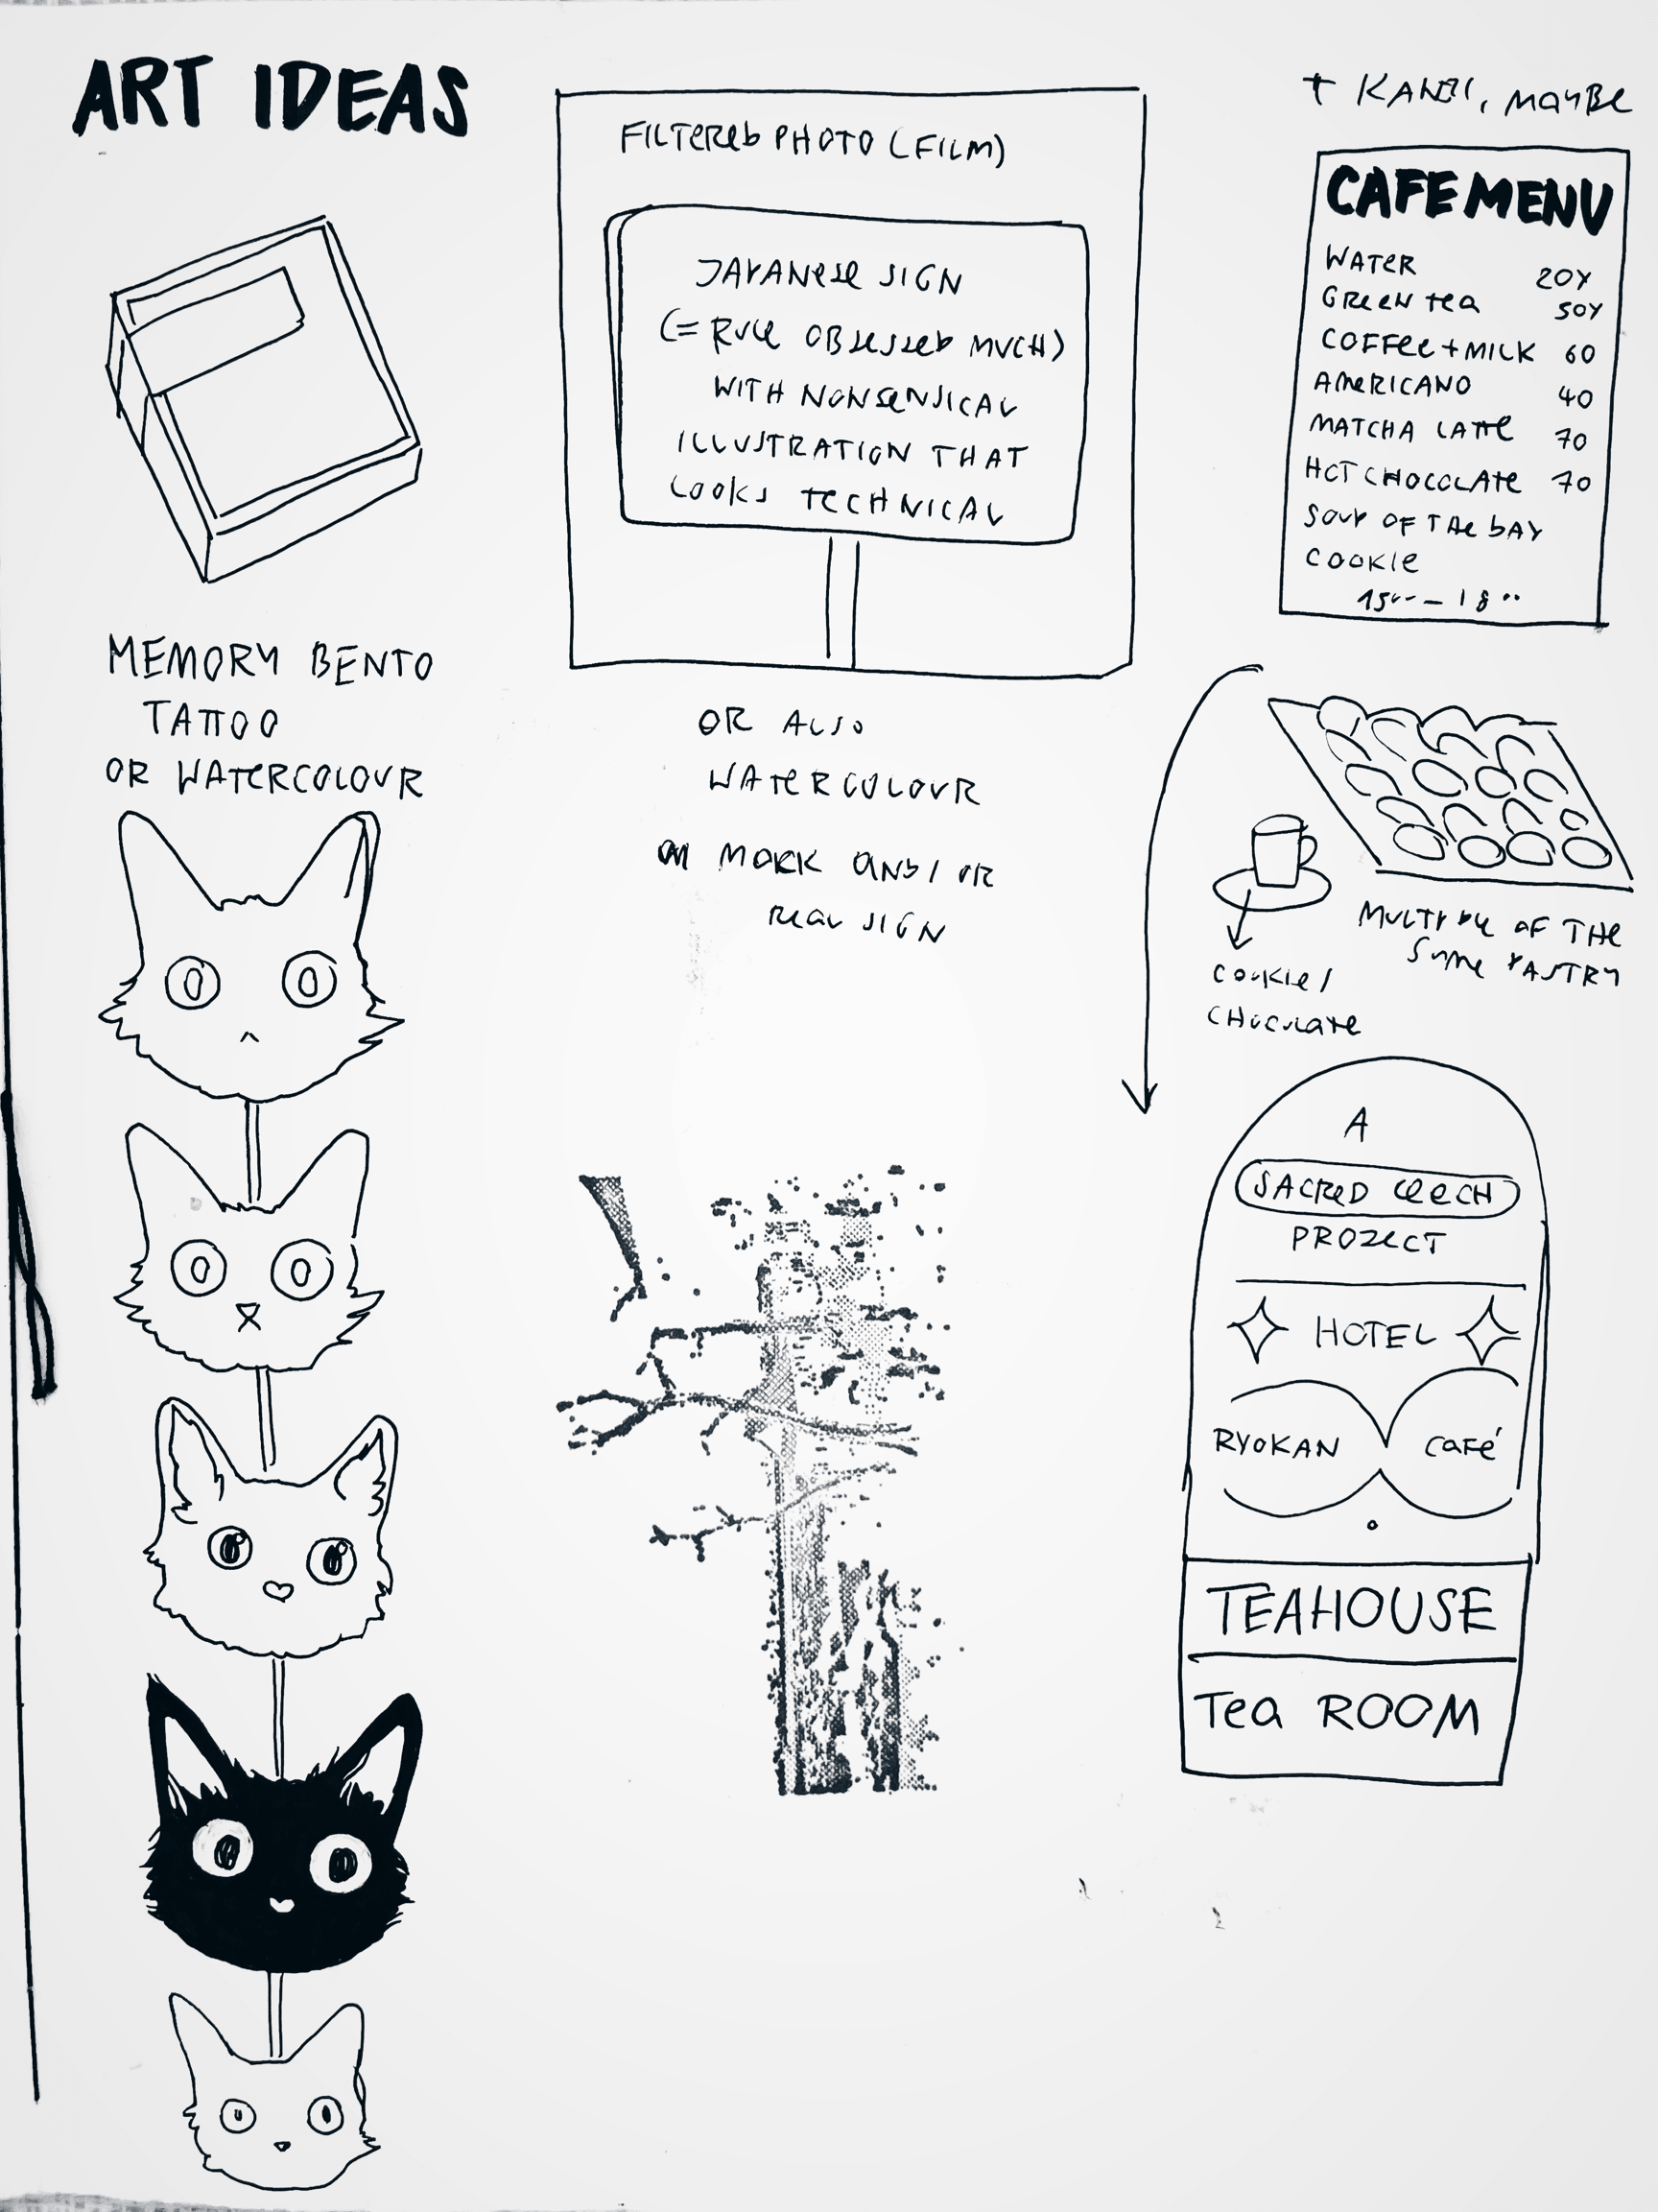 ART IDEAS
MEMORY BENTO
TATTOO
OR WATERCOLOUR
FILTERED PHOTO (FILM)
JAPANESE SIGN
(= RULE OBSESSED MUCH)
WITH NONSENSICAL
ILLUSTRATION THAT
LOOKS TECHNICAL
OR ALSO
WATERCOLOUR
MOCK AND / OR
REAL SIGN
+ KANJI, MAYBE
CAFE MENU
WATER 20Y
GREEN TEA 50Y
COFFEE + MILK 60
AMERICANO 40
MATCHA LATTE 70
HOT CHOCOLATE 70
SOUP OF THE DAY
COOKIE
15⁰⁰ – 18⁰⁰
MULTIPLE OF THE
SAME PASTRY
COOKIE /
CHOCOLATE
A
SACRED LEECH
PROJECT
HOTEL
RYOKAN CAFÉ
TEAHOUSE
TEA ROOM